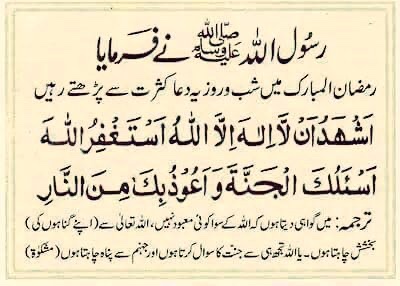 رسُول اللہ ﷺ نے فرمایا
رمضان المبارک میں شب و روز یہ دعا کثرت سے پڑھتے رہیں
اَشْهَدُ اَنْ لَّا اِلٰهَ اِلَّا اللهُ اَسْتَغْفِرُ اللهَ
اَسْئَلُكَ الْجَنَّةَ وَ اَعُوْذُ بِكَ مِنَ النَّارِ
ترجمہ: میں گواہی دیتا ہوں کہ اللہ کے سوا کوئی معبود نہیں، اللہ تعالیٰ سے (اپنے گناہوں کی)
بخشش چاہتا ہوں۔ یا اللہ تجھ ہی سے جنت کا سوال کرتا ہوں اور جہنم سے پناہ چاہتا ہوں (مشکوٰۃ)